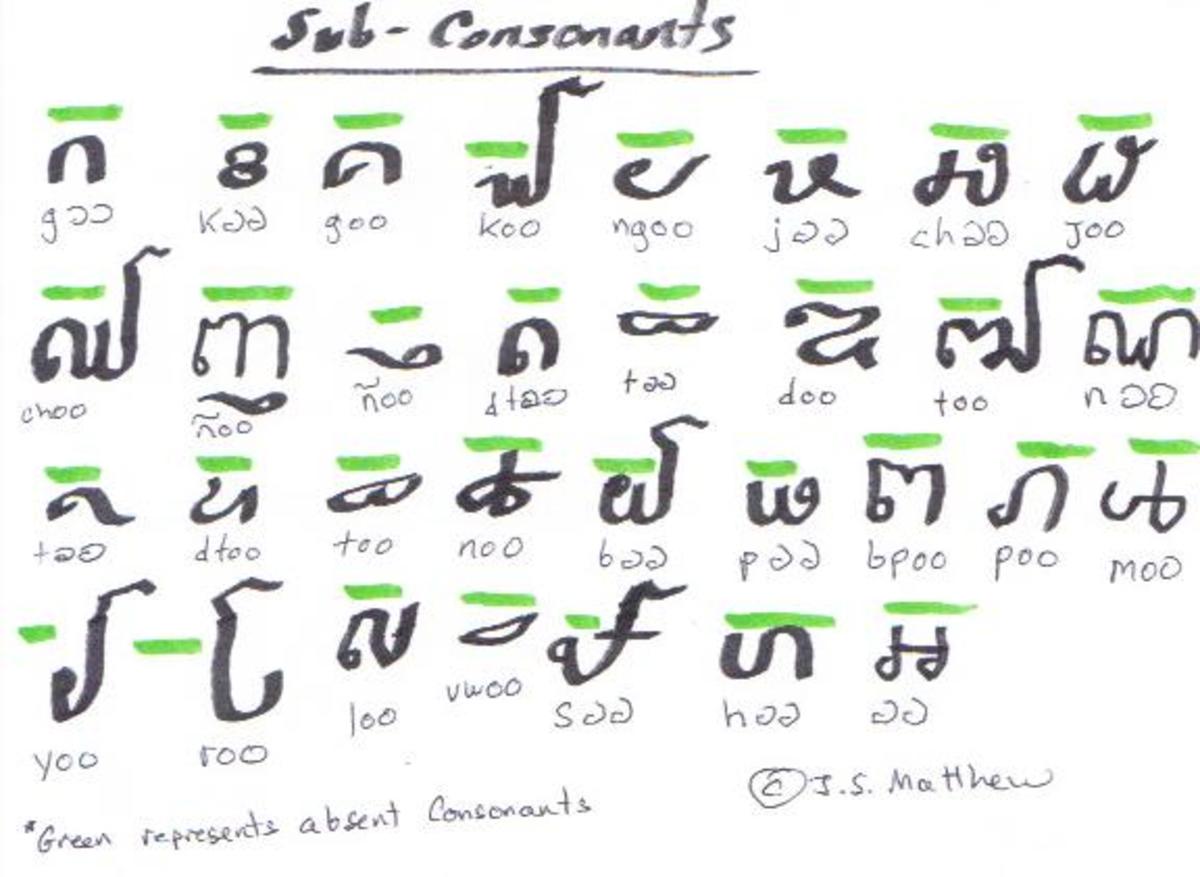 Sub-Consonants
្ក ្ខ ្គ ្ឃ ្ង ្ច ្ឆ ្ជ
gɔɔ kɔɔ goo koo ngoo jɔɔ chɔɔ Joo
្ឈ ្ញ ្ញ ្ដ ្ឋ ្ឌ ្ឍ ្ណ
choo ñoo ñoo dtɔɔ tɔɔ doo too nɔɔ
្ត ្ទ ្ធ ្ន ្ប ្ផ ្ព ្ភ ្ម
tɔɔ dtoo too noo bɔɔ pɔɔ bpoo poo moo
្យ ្រ ្ល ្វ ្ស ្ហ ្អ
yoo roo loo vwoo sɔɔ hɔɔ ɔɔ
© J.S. Matthew
*Green represents absent Consonants